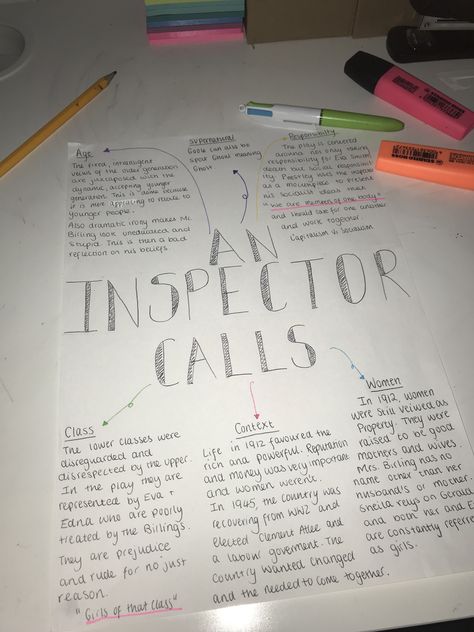 Age
The fixed, intransigent
views of the older generation
are juxtaposed with the
dynamic, accepting younger
generation. This is done because
it is more appealing to relate to
younger people.
Also dramatic irony makes Mr.
Birling look uneducated and
stupid. This is then a bad
reflection on his beliefs
Supernatural
Goole can also be
spelt Ghoul meaning
Ghost
Responsibility
The play is centered
around not only taking
responsibility for Eva Smiths
death but social responsibil
ity. Priestley uses the inspector
as a mouthpiece to present
his socialist ideals that
"we are members of one body"
and should care for one another
and work together.
Capitalism v. Socialism
AN
INSPECTOR
CALLS
Class
The lower classes were
disreguarded and
disrespected by the upper.
In the play they are
represented by Eva +
Edna who are poorly
treated by the Birlings.
They are prejudice
and rude for no just
reason.
"Girls of that class"
Context
Life in 1912 favoured the
rich and powerful. Reputation
and money was very important
and women weren't.
In 1945, the country was
recovering from WW2 and
elected Clement Atlee and
a labour goverment. The
country wanted change
and the needed to come together.
Women
In 1912, women
were still veiwed as
Property. They were
raised to be good
mothers and wives.
Mrs. Birling has no
name other than her
husband's or mother.
Sheila relys on Gerald
and both her and E
are constantly referre
as girls.